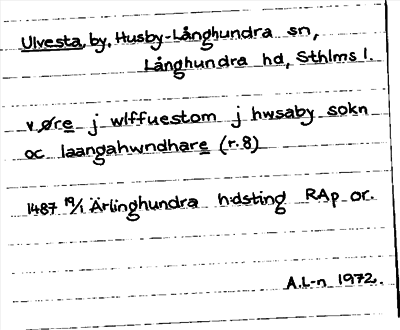 Ulvesta, by, Husby-Långhundra sn,
Långhundra hd, Sthlms l.
v øre j wlffuestom j hwsaby sokn
oc laangahwndhare (r. 8)
1487 19/1 Ärlinghundra hdsting RAp or.
A.L-n 1972.